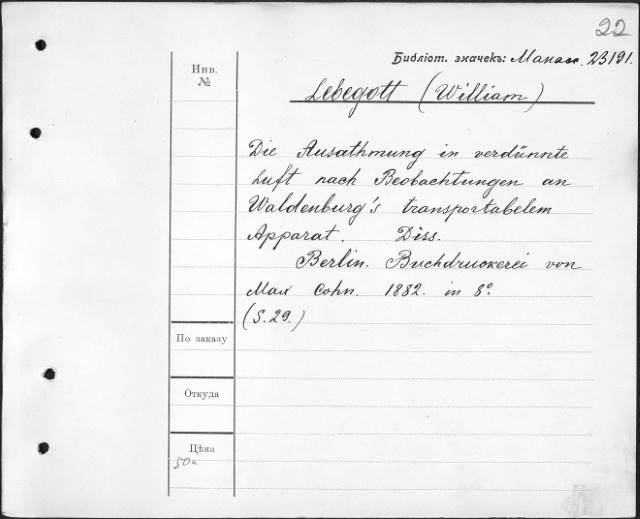 22
Библіот. значекъ: Манасс. 23191.
Инв.
№
Lebegott (William)
Die Ausathmung in verdünnte
Luft nach Beobachtungen an
Waldenburg's transportabelem
Apparat. Diss.
Berlin. Buchdruckerei von
Max Cohn. 1882. in 8°
(S. 29.)
По заказу
Откуда
Цѣна